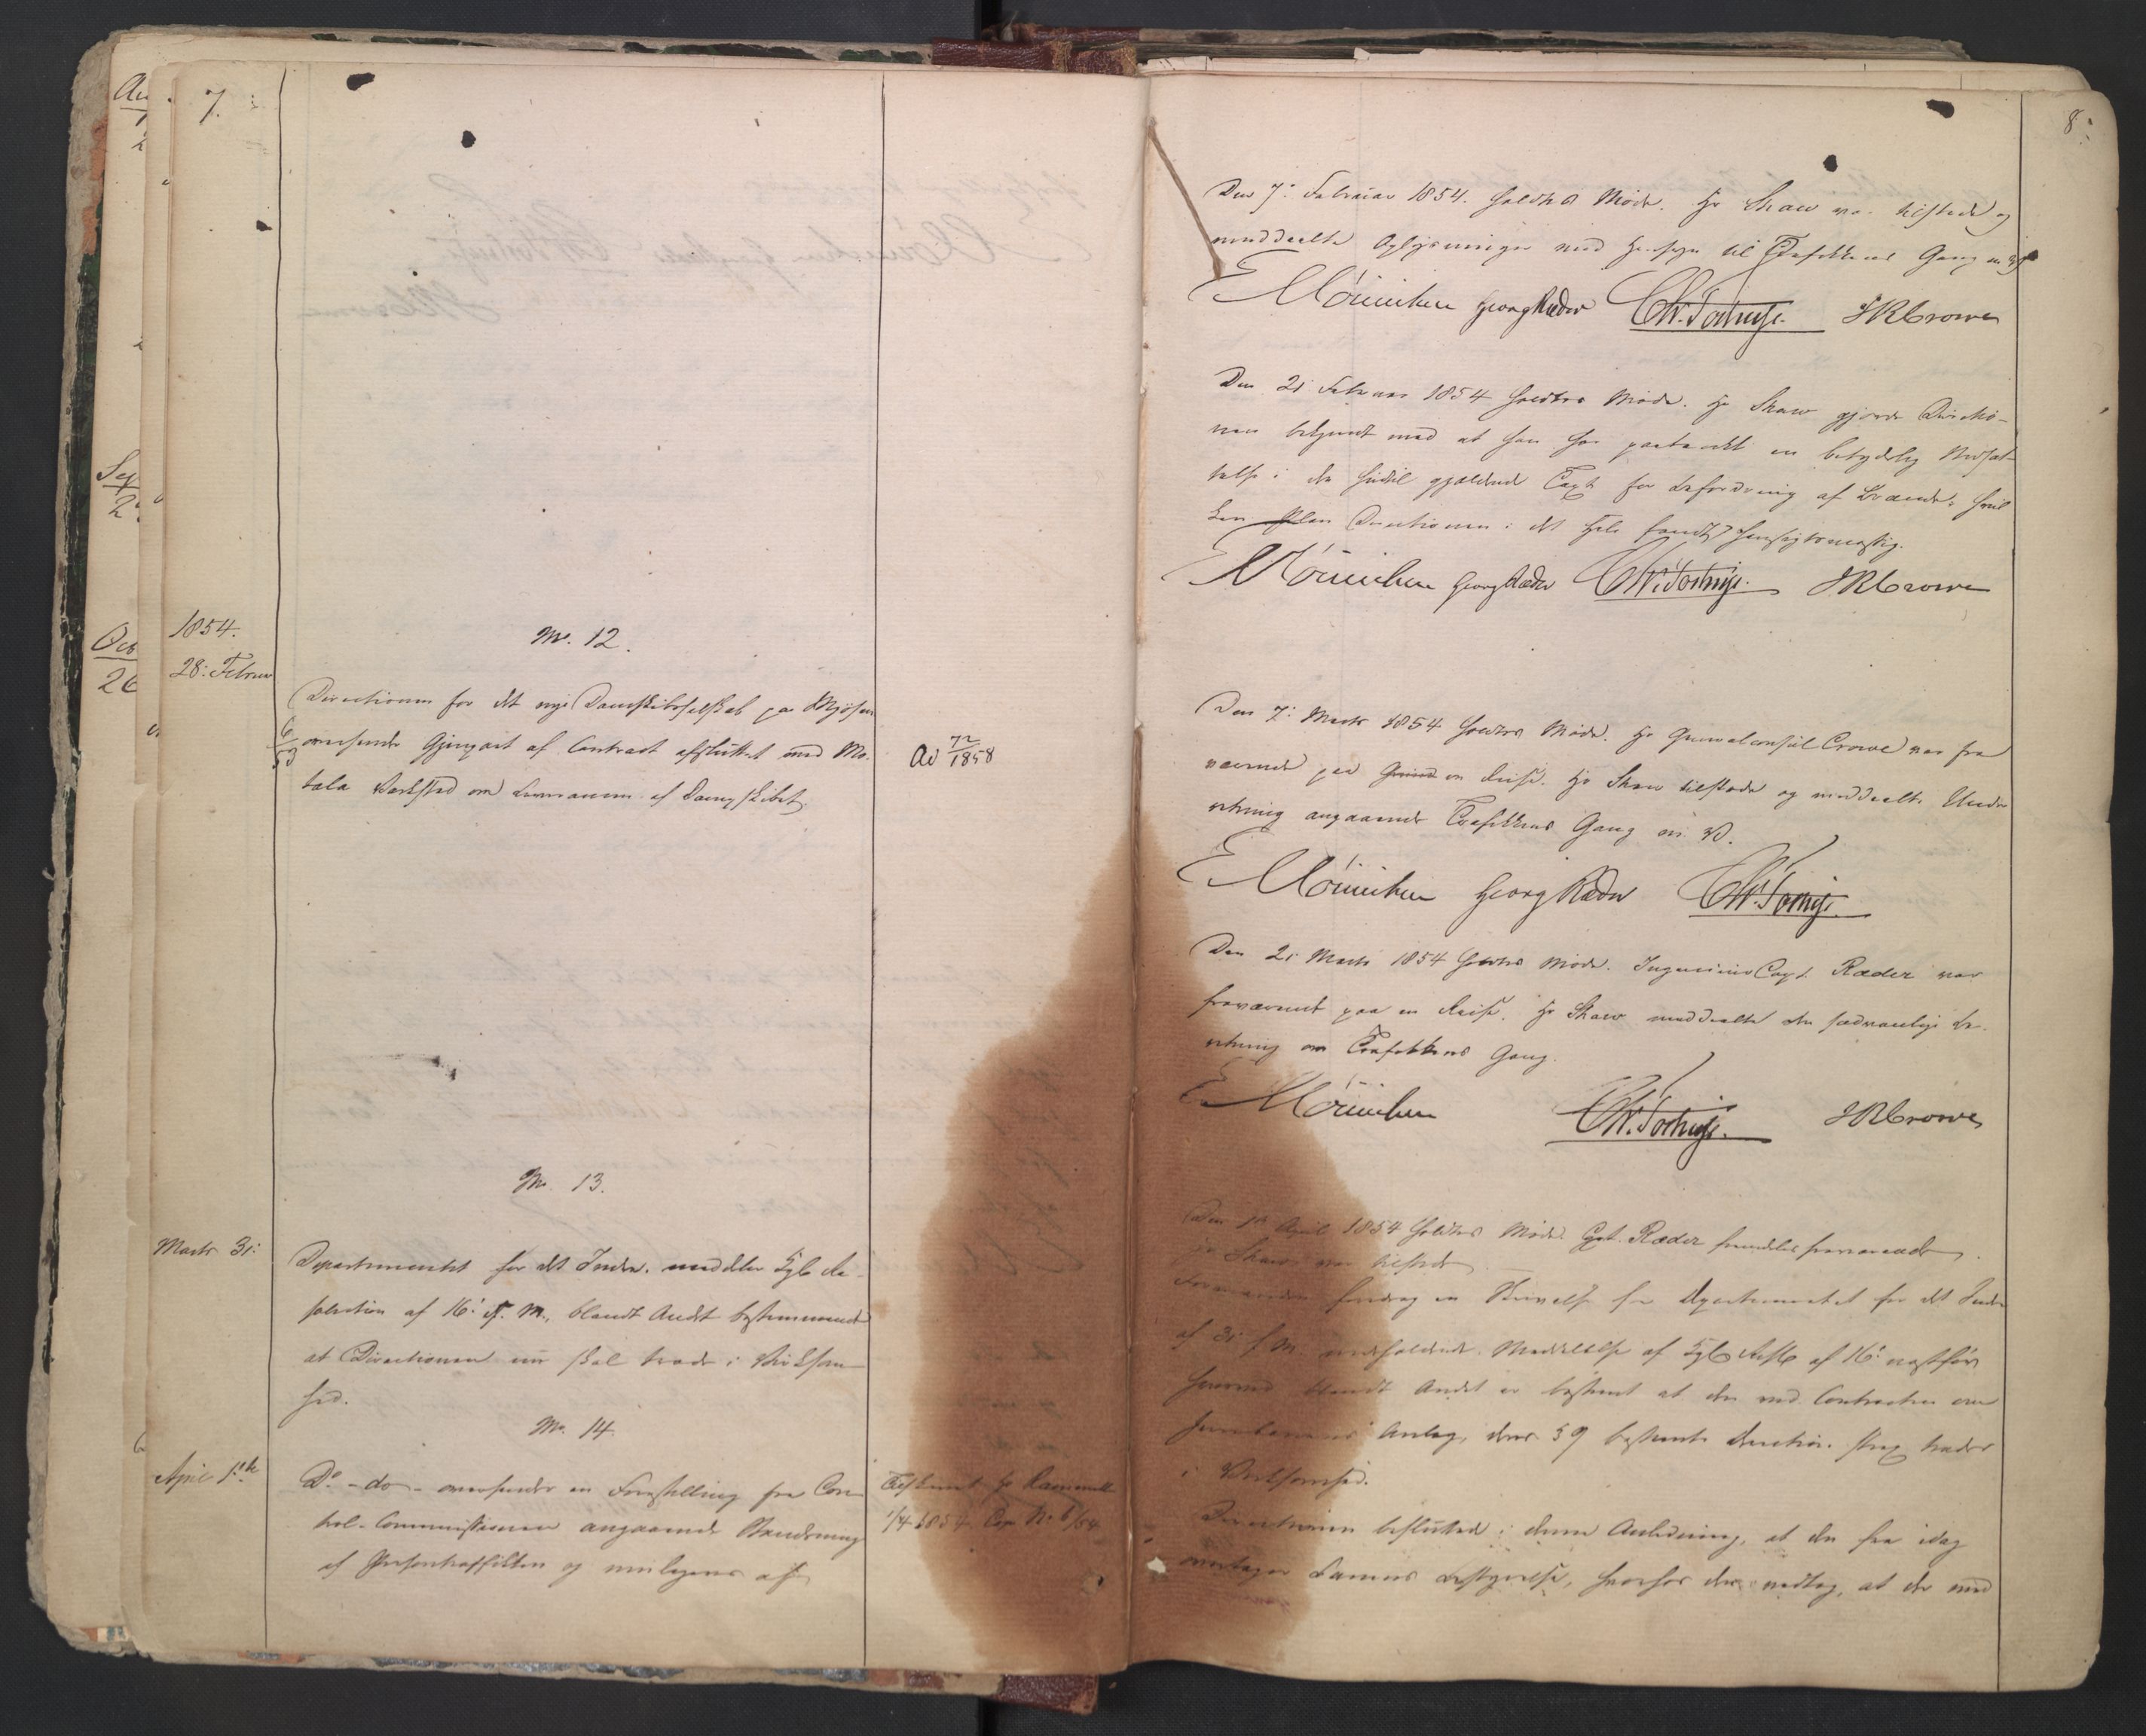 7.
1854.
28: Februar
No. 12.
Directionen for det nye Dampskibsselskab paa Mjøsen
oversender Gjenpart af Contract afsluttet med Mo-
tala Værksted om Leverancen af Dampskibet.
6/53
Ad 72/1858
No. 13.
Marts 31:
Departementet for det Indre. meddeler Kgl. Re-
solution af 16: d. M., blandt Andet bestemmende
at Directionen nu skal træde i Virksom-
hed.
No. 14.
April 1ste
Do - do - oversender en Forestilling fra Con-
trol-Commissionen angaaende Standsning
af Persontraffikken og
1/4 1854 Cop. No. 6/54
8:
Den 7: Februar 1854. holdtes Møde. Hr Shaw var tilstede og
meddeelte Oplysninger med Hensyn til Trafikkens Gang m. V.
E Mønnichen Georg Ræder Chr. Tostrup. JRCrowe
Den 21 Februar 1854 holdtes Møde. Hr Shaw gjorde Directio-
nen bekjendt med at han har paatænkt en betydelig Nedsæt-
telse i den hidtil gjældende Taxt for Befordring af Brænde; hvil-
ken Plan Directionen i det Hele fandt hensigtsmæssig.
E Mønnichen Georg Ræder Chr. Tostrup. JRCrowe
Den 7: Marts 1854 holdtes Møde. Hr Generalconsul Crowe var fra-
værende paa en Reise. Hr Shaw tilstede og meddeelte Under-
retning angaaende Trafikkens Gang m. V.
E Mønnichen Georg Ræder Chr. Tostrup.
Den 21 Marts 1854 holdtes Møde. Ingenieur Capt. Ræder var
fraværende paa en Reise. Hr Shaw meddeelte den sædvanlige Be-
retning om Trafikkens Gang.
E Mønnichen Chr. Tostrup. JRCrowe
Den 1ste April 1854 holdtes Møde. Capt. Ræder fremdeles fraværende.
Hr Shaw var tilstede.
Formanden foredrog en Skrivelse fra Departementet for det Indre
af 31 f. M. indholdende Meddelelse af Kgl. Resl. af 16: næstfør
hvorved blandt Andet er bestemt at den ved Contracten om
Jernbanens Anlæg, dens § 9 bestemte Direction strax træder
i Virksomhed.
Directionen besluttede i denne Anledning, at den fra idag
overtager Banens Bestyrelse, hvorhos den vedtog, at der med